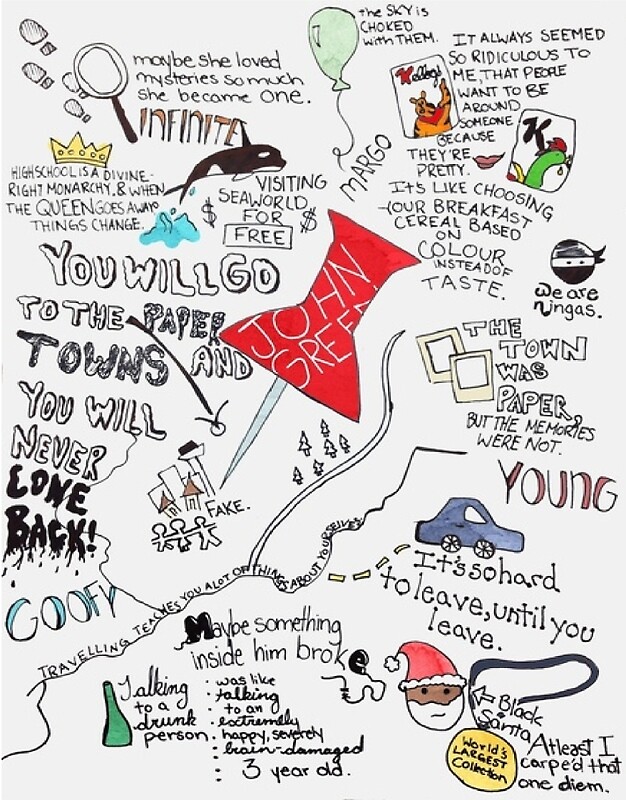 the SKY is
CHOKED
with THEM.
maybe she loved
mysteries so much
she became one.
INFINITE
IT ALWAYS SEEMED
SO RIDICULOUS TO
ME, THAT PEOPLE
WANT TO BE
AROUND
SOMEONE
BECAUSE
THEY'RE
PRETTY.
IT'S LIKE CHOOSING
YOUR BREAKFAST
CEREAL BASED
ON
COLOUR
INSTEAD OF
TASTE.
Kellogg's
K
MARGO
HIGHSCHOOL IS A DIVINE-
RIGHT MONARCHY, & WHEN
THE QUEEN GOES AWAY
THINGS CHANGE.
$ VISITING
SEAWORLD
FOR $
FREE
JOHN
GREEN
We are
ningas.
YOU WILL GO
TO THE PAPER
TOWNS AND
YOU WILL
NEVER
COME
BACK!
THE
TOWN
WAS
PAPER,
BUT THE MEMORIES
WERE NOT.
FAKE.
YOUNG
GOOFY
TRAVELLING TEACHES YOU ALOT OF THINGS ABOUT YOURSELVES
It's so hard
to leave, until you
leave.
Maybe something
inside him broke
Talking
to a
drunk
person.
: was like
: talking
: to an
: extremely
: happy, severely
: brain-damaged
: 3 year old.
Black
Santa
World's
LARGEST
Collection
Atleast I
carpe'd that
one diem.